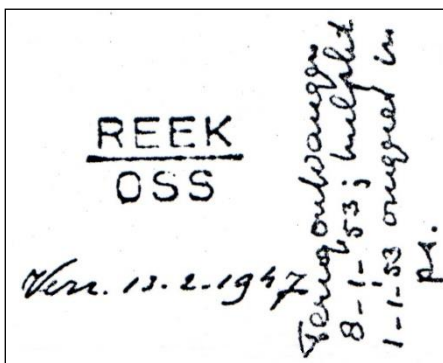 REEK
OSS
Verz. 13-2-1947
Terugontvangen
8-1-'53; hulpkt
1-1-'53 omgezet in
pa.